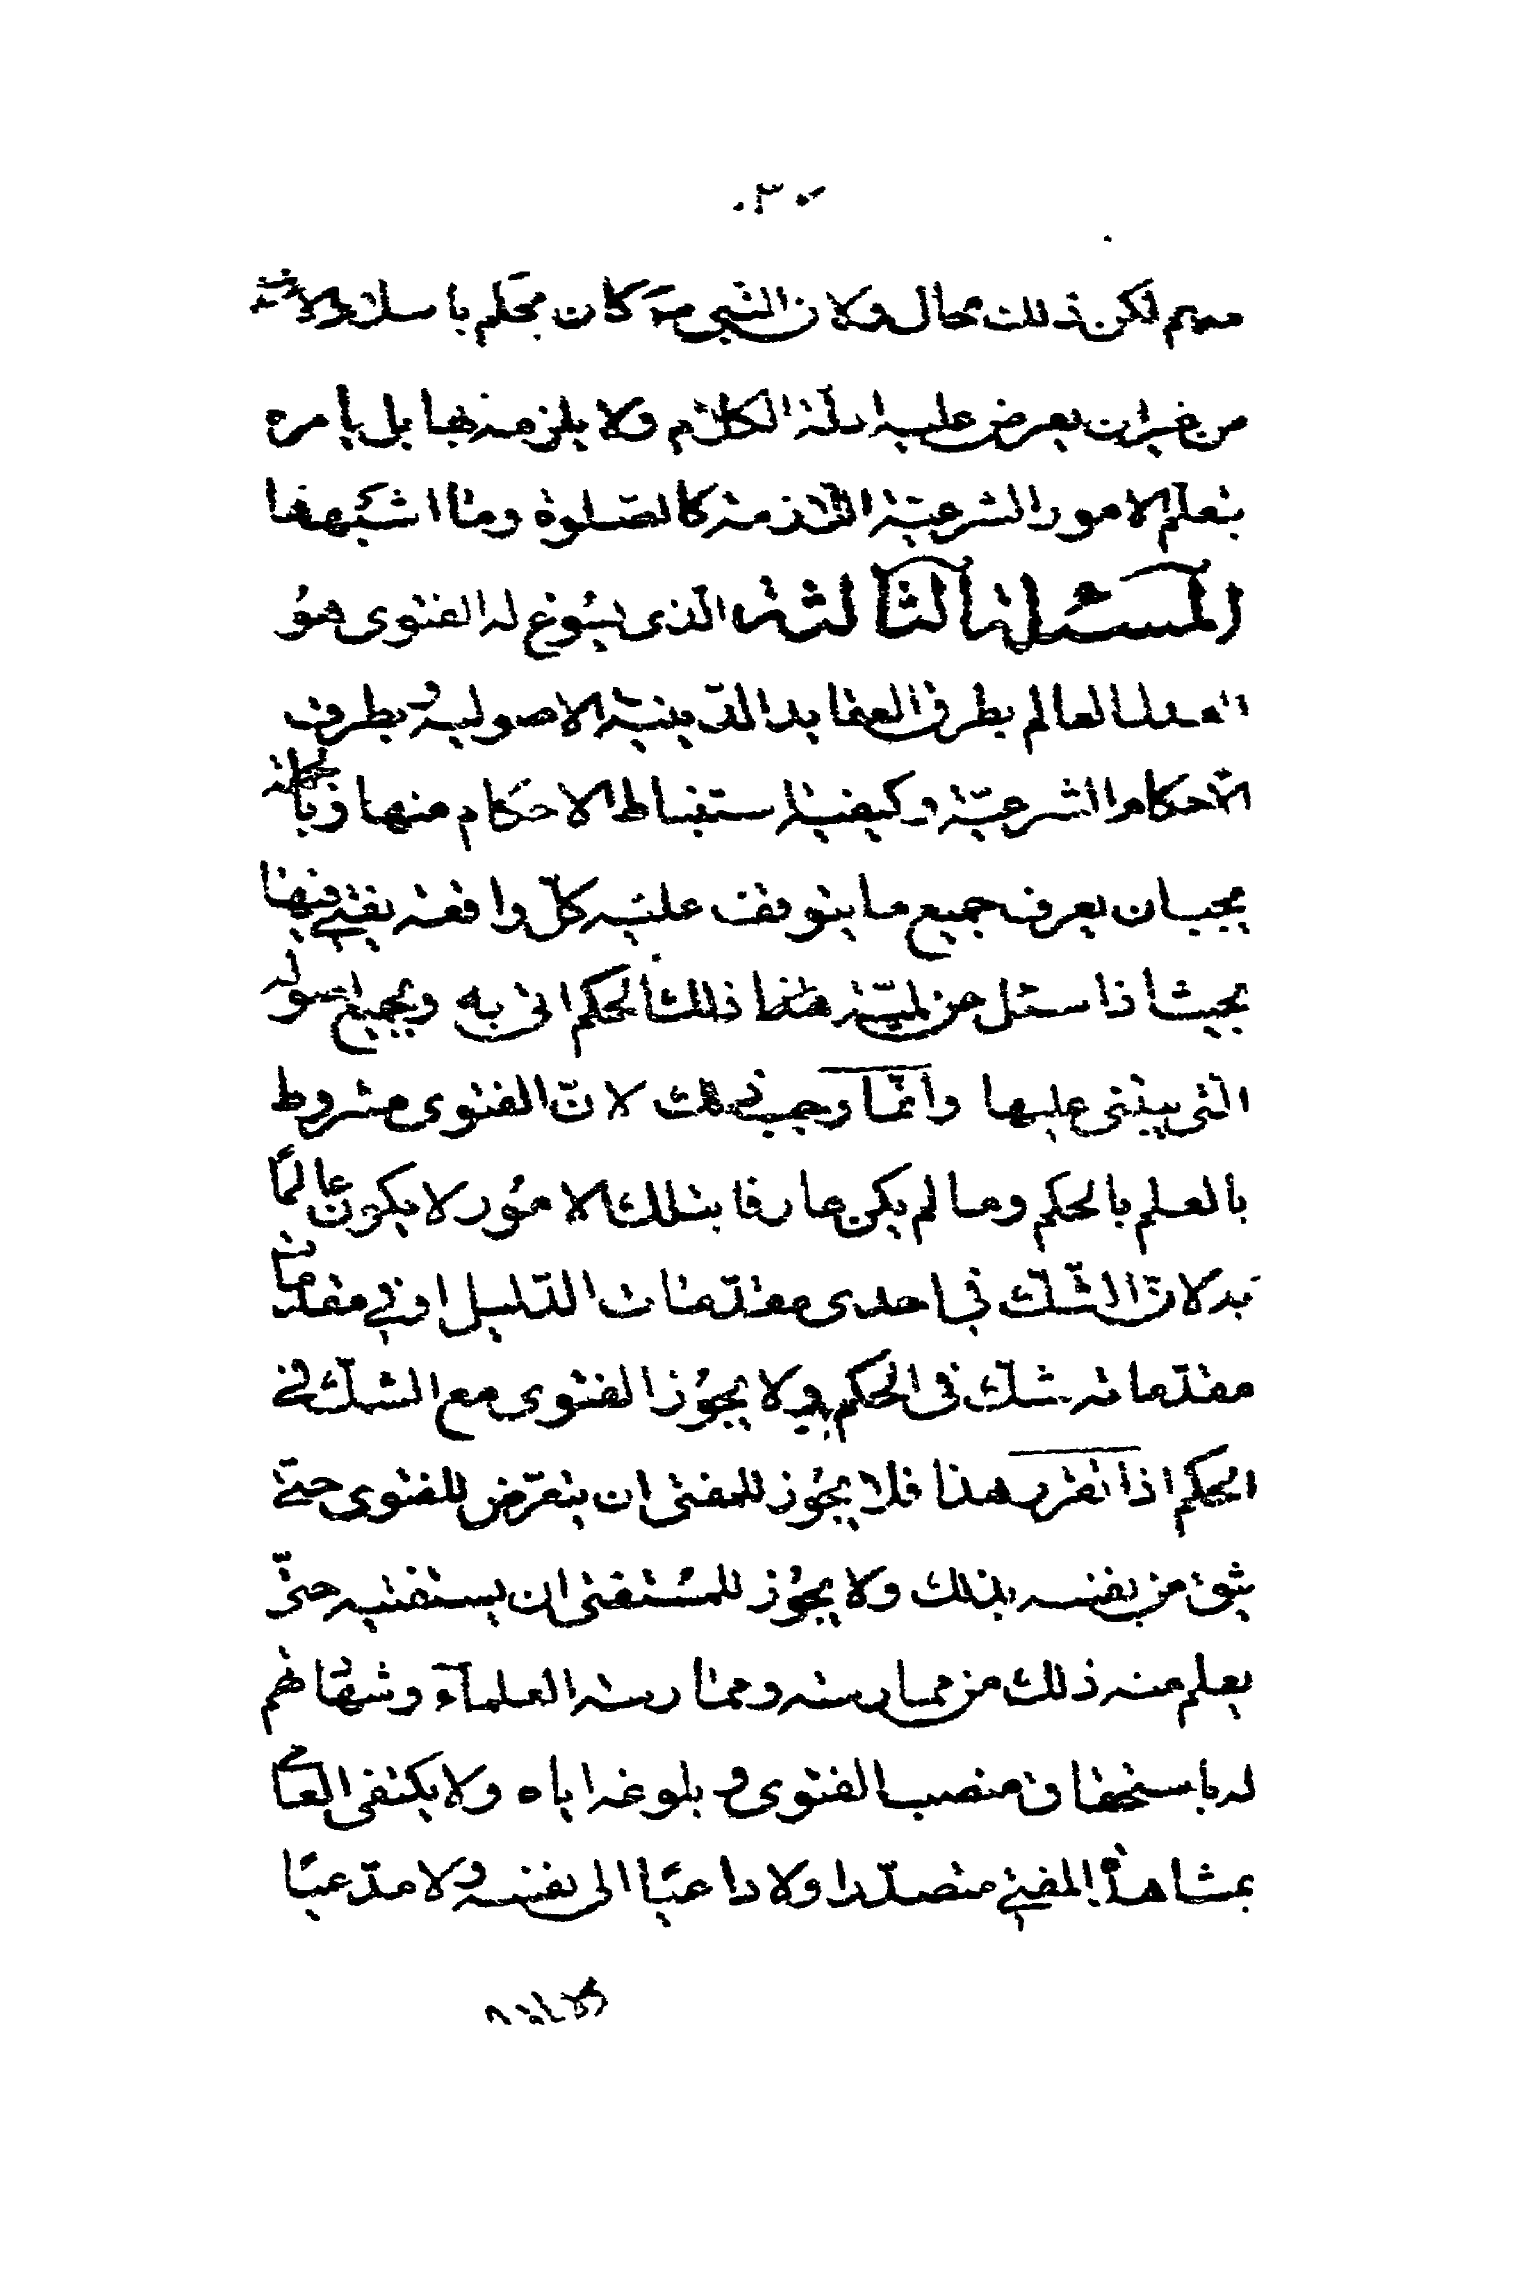 ٣٠
منهم لكن ذلك محال ولان النبي ص كان يحكم باسلام
من غير ان يعرض عليه ادلة الكلام ولا يلزمه بها بل يأمره
بتعلم الامور الشرعية اللازمة كالصلوة وما اشبهها
المسئلة الثالثة الذى يسوغ له الفتوى هو
العدل العالم بطرق العقايد الدينية الاصولية وبطرق
الأحكام الشرعية وكيفية استنباط الاحكام منها وبالجملة
يجب ان يعرف جميع ما يتوقف عليه كل واقعة يفتى فيها
بحيث اذا سئل من لمية هذا ذلك الحكم اتى به وبجميع اصوله
التى يبتنى عليها وانما وجب ذلك لانّ الفتوى مشروط
بالعلم بالحكم وما لم يكن عارفا بتلك الامور لا يكون عالما
به لانّ الشكّ فى احدى مقدّمات الدّليل او فى مقدمات
مقدّماته شكّ فى الحكم ولا يجوز الفتوى مع الشك فى
الحكم اذا تقرر هذا فلا يجوز للمفتى ان يتعرّض للفتوى حتى
يثق من نفسه بذلك ولا يجوز للمستفتى ان يستفتيه حتّى
يعلم منه ذلك من ممارسته وممارسة العلماء وشهاداتهم
له باستحقاق منصب الفتوى و بلوغه اياه ولا يكتفى العامى
بمشاهدة المفتى متصدّرا ولا داعيّا الى نفسه ولا مدّعيّا